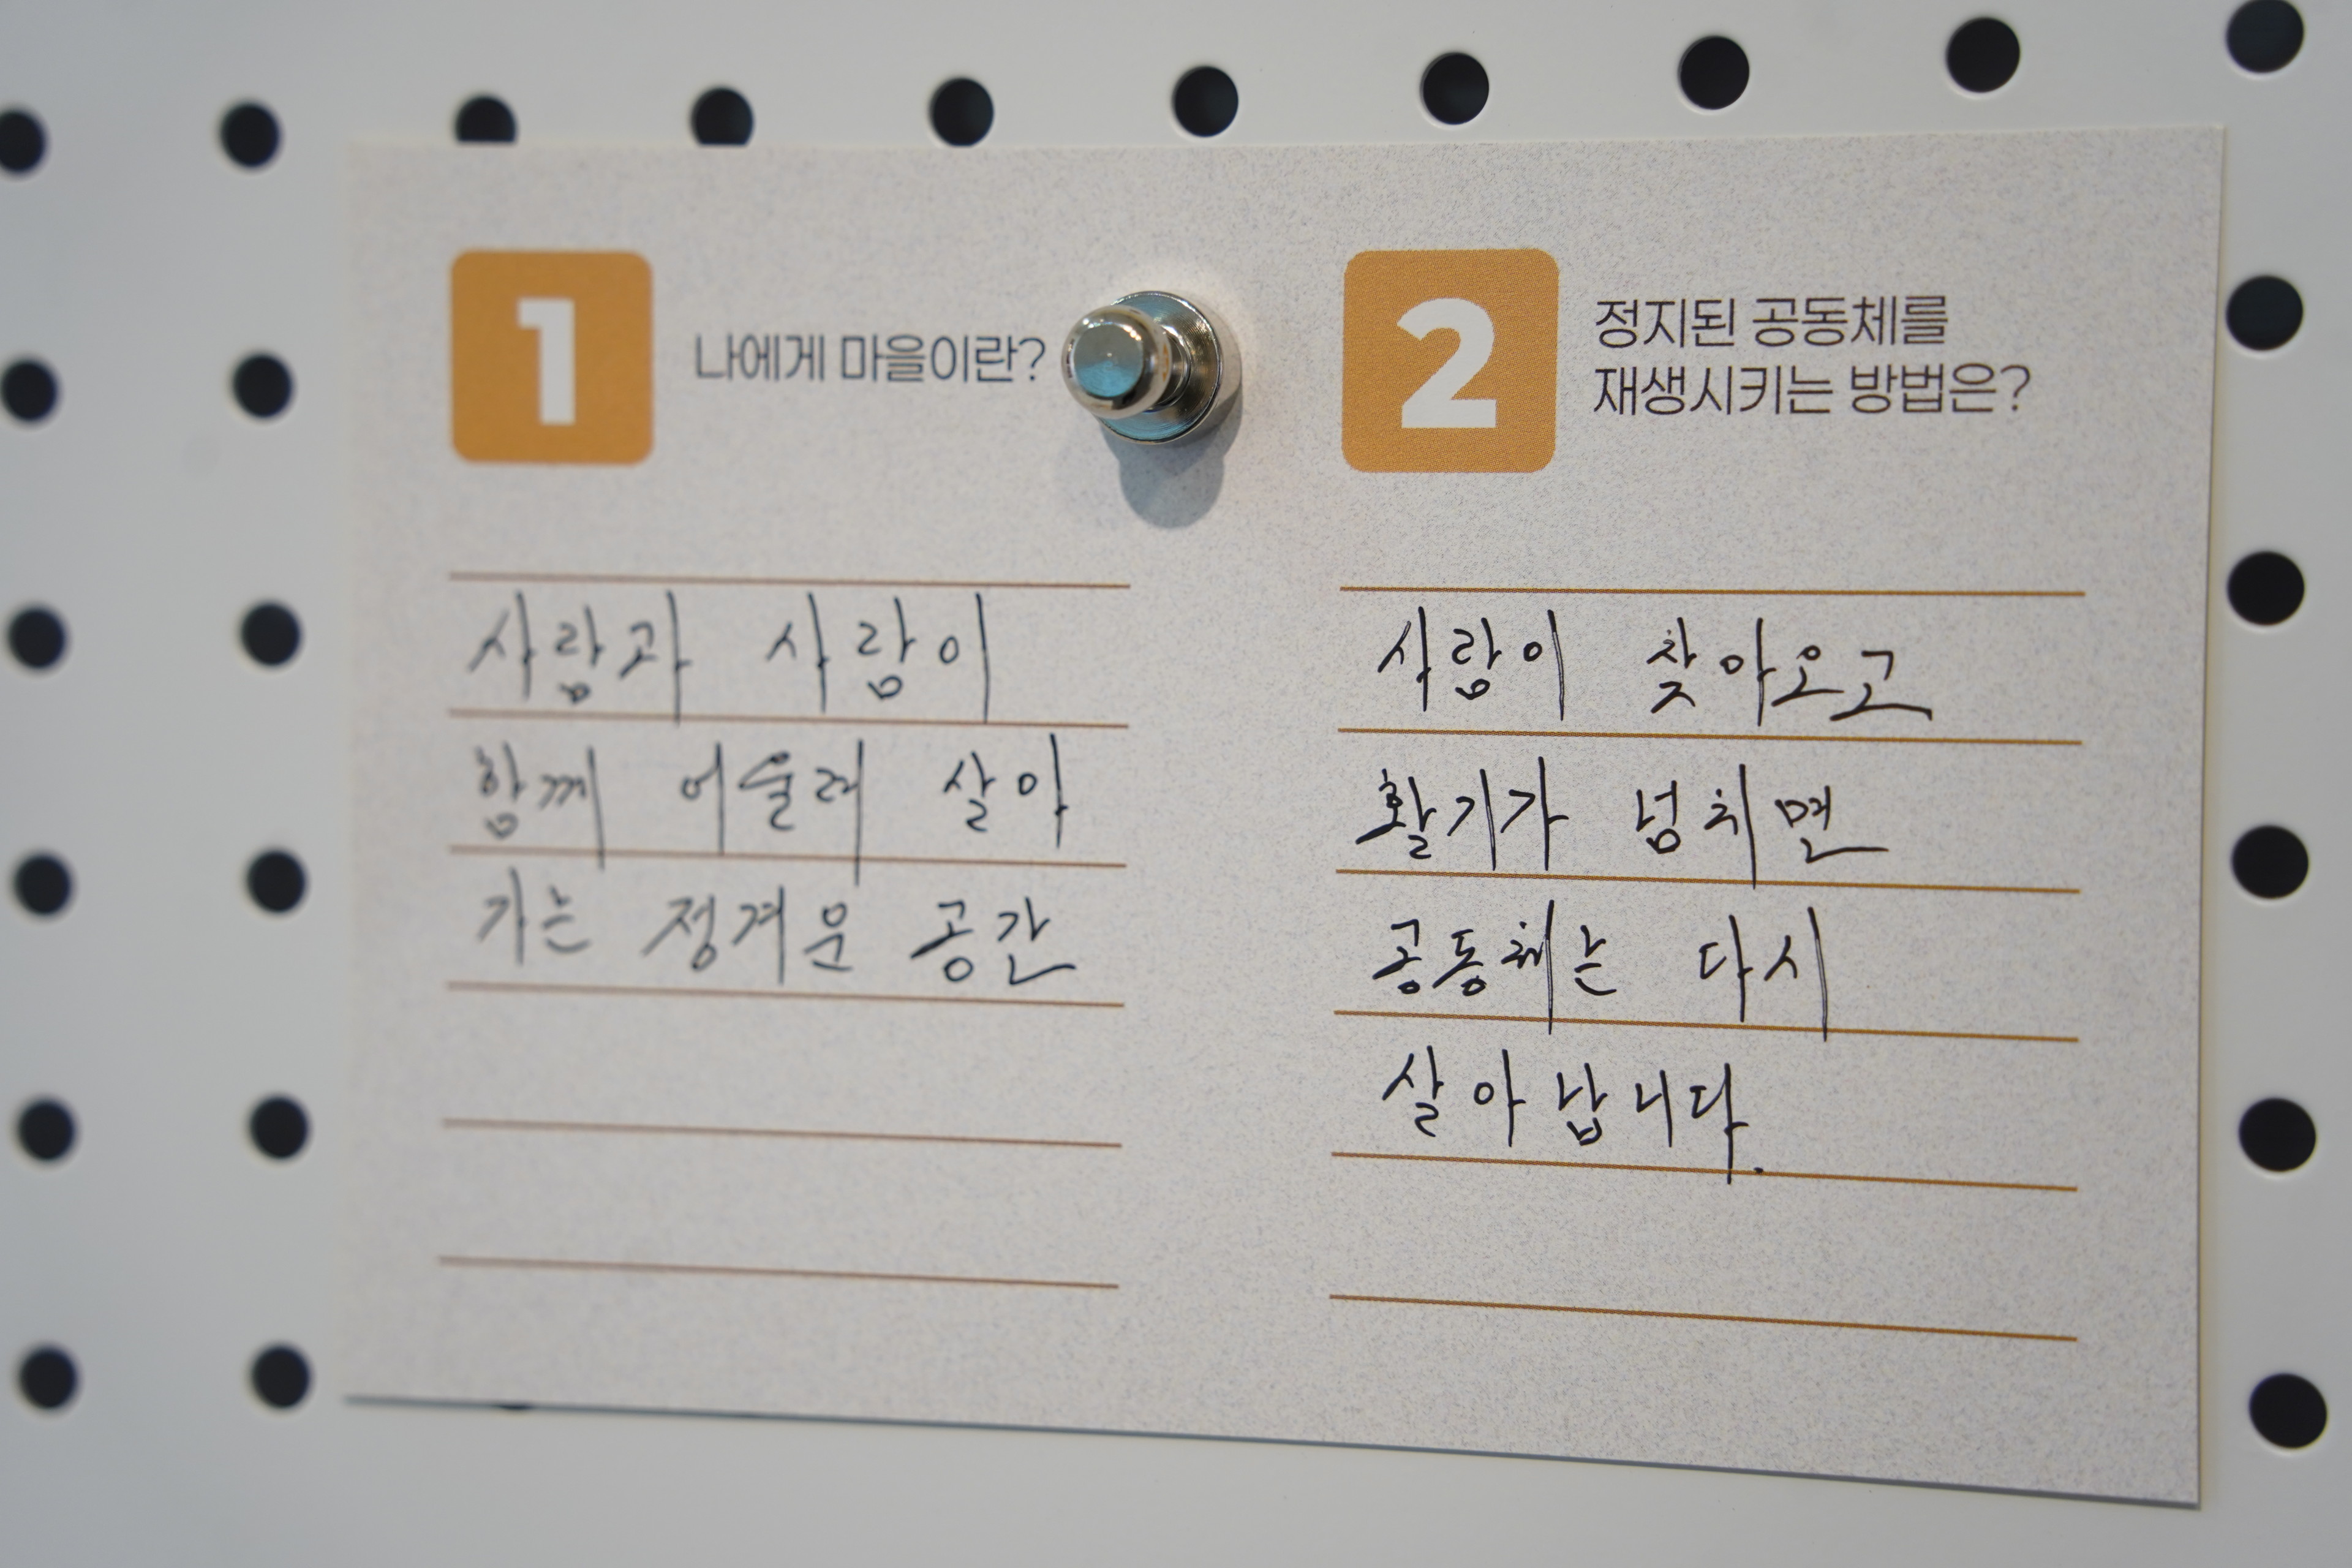 1
나에게 마을이란?
사람과 사람이
함께 어울려 살아
가는 정겨운 공간
2
정지된 공동체를
재생시키는 방법은?
사람이 찾아오고
활기가 넘치면
공동체는 다시
살아납니다.